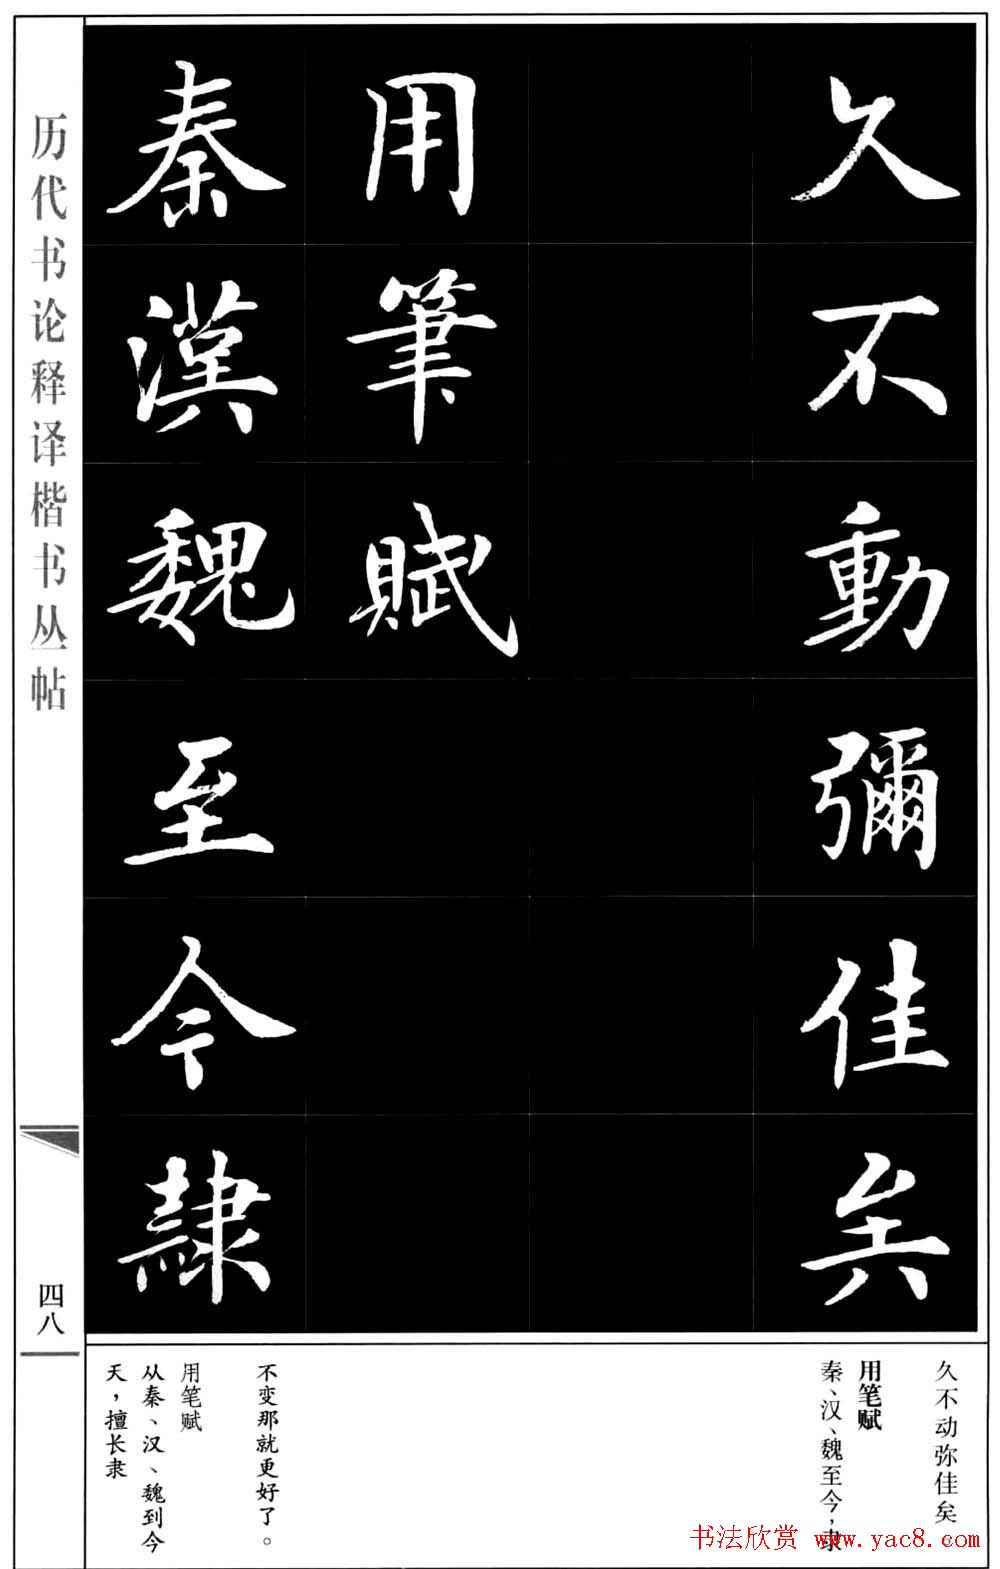 久不動彌佳矣
用筆賦
秦漢魏至今隸
久不动弥佳矣。
用笔赋
秦、汉、魏至今，隶
不变那就更好了。
用笔赋
从秦、汉、魏到今
天，擅长隶
历代书论释译楷书丛帖
四八
书法欣赏 www.yac8.com